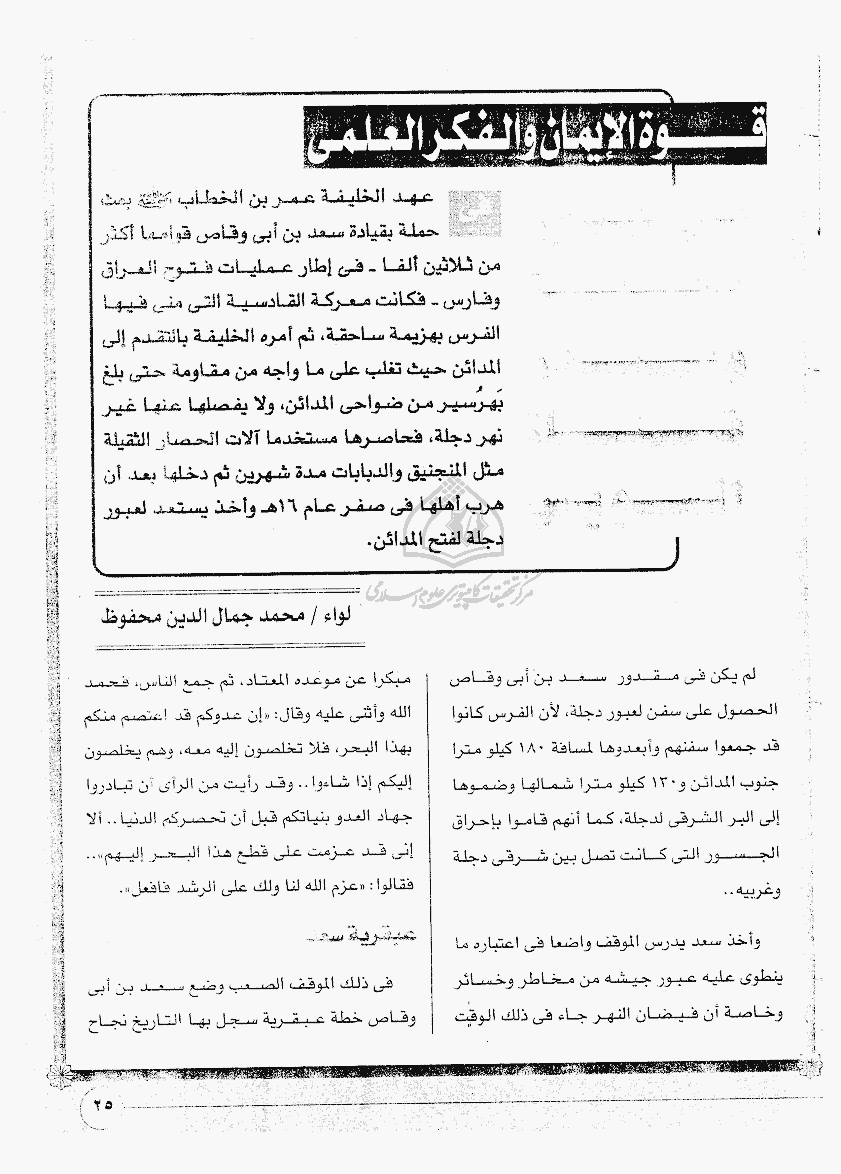 قوة الإيمان والفكر العلمى
فى
عهد الخليفة عمر بن الخطاب رضي الله عنه بعث
حملة بقيادة سعد بن أبى وقاص قوامها أكثر
من ثلاثين ألفا - فى إطار عمليات فتوح العراق
وفارس - فكانت معركة القادسية التى منى فيها
الفرس بهزيمة ساحقة، ثم أمره الخليفة بالتقدم إلى
المدائن حيث تغلب على ما واجه من مقاومة حتى بلغ
بَهرُسير من ضواحى المدائن، ولا يفصلها عنها غير
نهر دجلة، فحاصرها مستخدما آلات الحصار الثقيلة
مثل المنجنيق والدبابات مدة شهرين ثم دخلها بعد أن
هرب أهلها فى صفر عام ١٦هـ وأخذ يستعد لعبور
دجلة لفتح المدائن.
مركز تحقيقات كامپيوترى علوم اسلامى
لواء / محمد جمال الدين محفوظ
لم يكن فى مقدور سعد بن أبى وقاص
الحصول على سفن لعبور دجلة، لأن الفرس كانوا
قد جمعوا سفنهم وأبعدوها لمسافة ١٨٠ كيلو مترا
جنوب المدائن و١٣٠ كيلو مترا شمالها وضموها
إلى البر الشرقى لدجلة، كما أنهم قاموا بإحراق
الجسور التى كانت تصل بين شرقى دجلة
وغربيه..
وأخذ سعد يدرس الموقف واضعا فى اعتباره ما
ينطوى عليه عبور جيشه من مخاطر وخسائر
وخاصة أن فيضان النهر جاء فى ذلك الوقت
مبكرا عن موعده المعتاد، ثم جمع الناس، فحمد
الله وأثنى عليه وقال: «إن عدوكم قد اعتصم منكم
بهذا البحر، فلا تخلصون إليه معه، وهم يخلصون
إليكم إذا شاءوا.. وقد رأيت من الرأى أن تبادروا
جهاد العدو بنياتكم قبل أن تحصركم الدنيا.. ألا
إنى قد عزمت على قطع هذا البحر إليهم»..
فقالوا: «عزم الله لنا ولك على الرشد فافعل».
عبقرية سعد
فى ذلك الموقف الصعب وضع سعد بن أبى
وقاص خطة عبقرية سجل بها التاريخ نجاح
٢٥